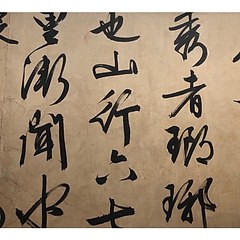 秀者瑯琊
也山行六七
里漸聞水